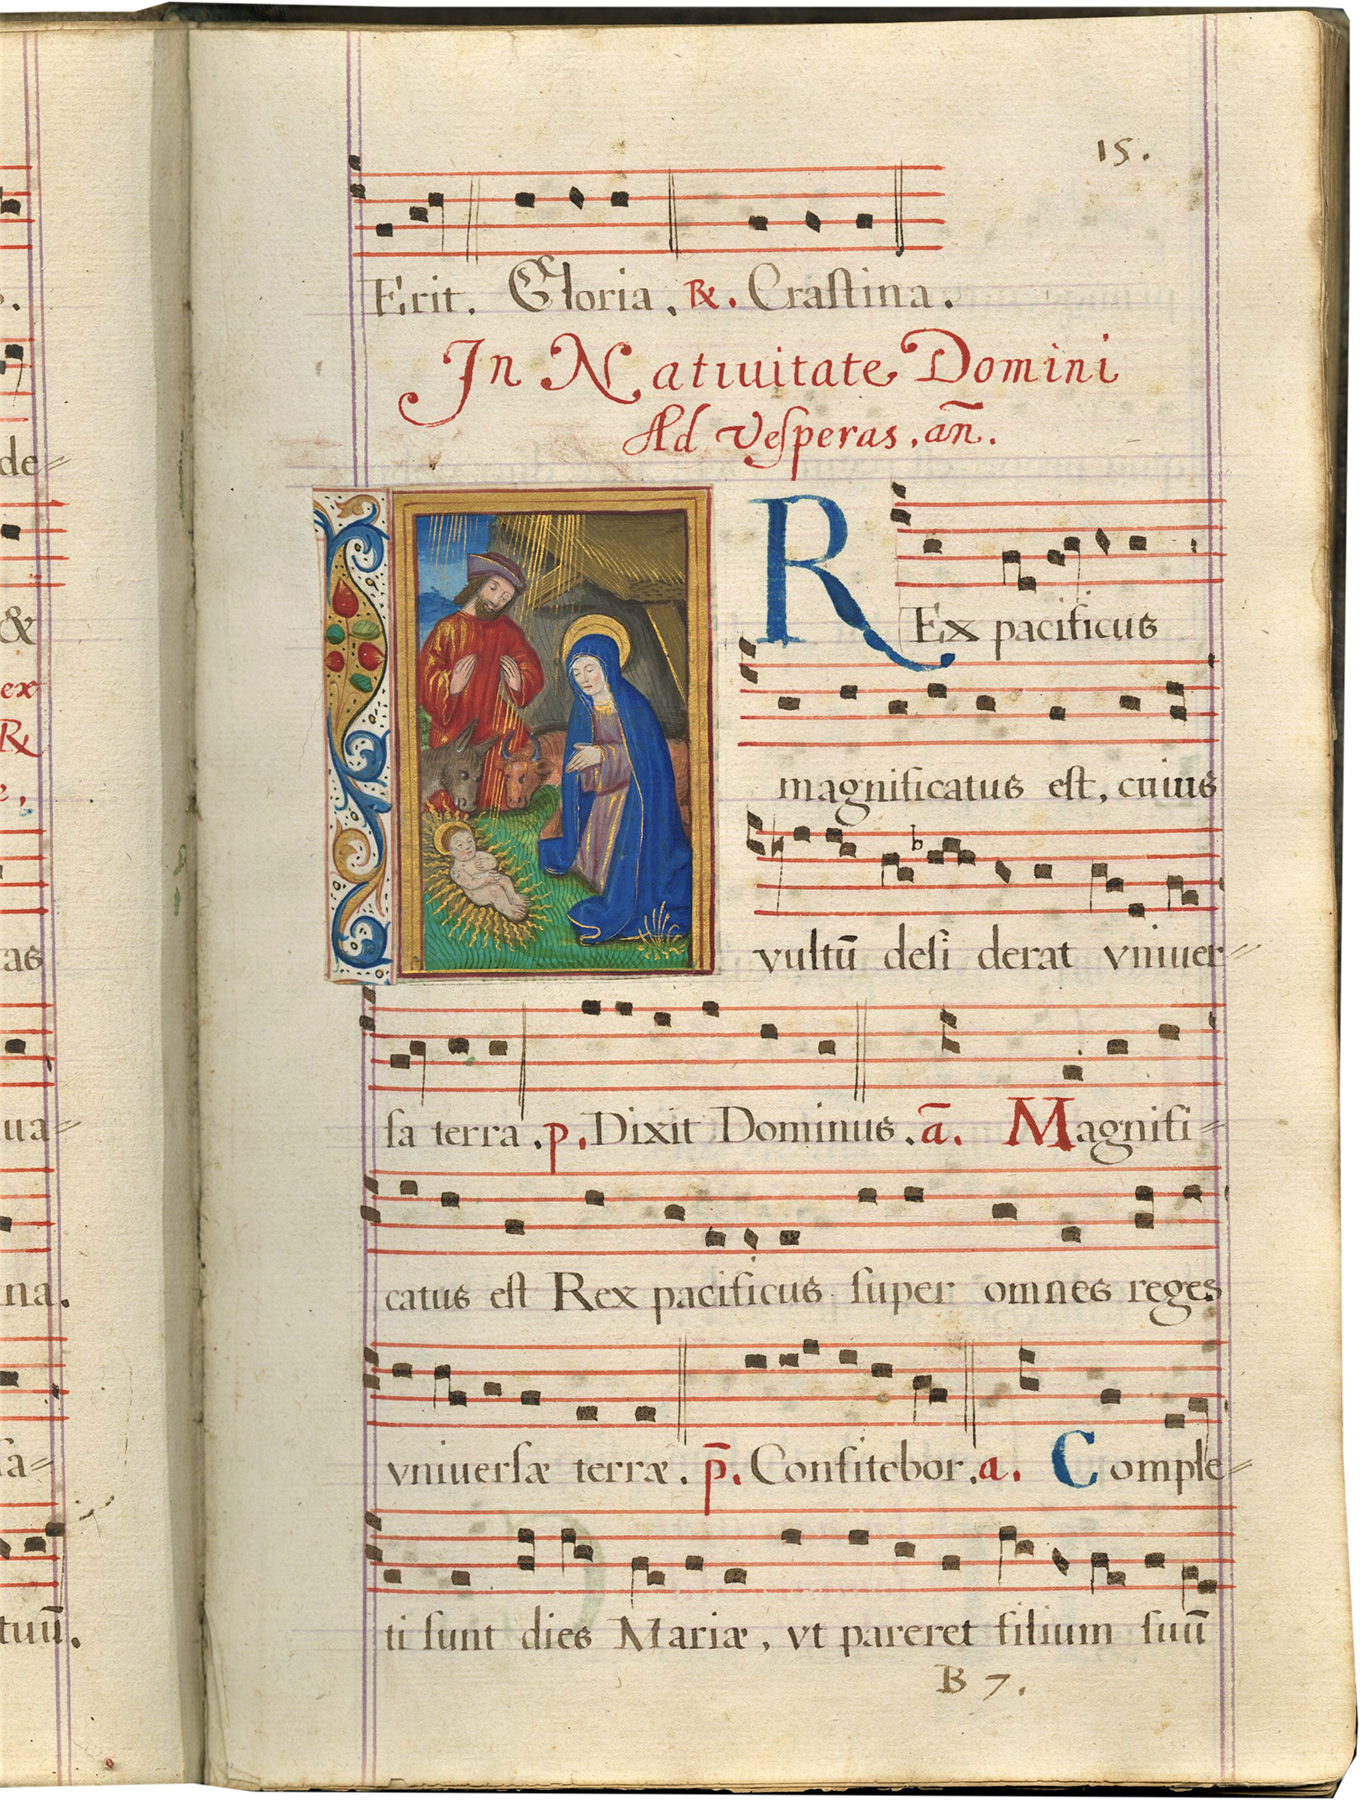 15.
Erit. Gloria. ℟. Craſtina.
In Natiuitate Domini
Ad Veſperas. an̄.
REx pacificus
magnificatus eſt, cuius
vultū deſi derat vniuer=
ſa terra. p. Dixit Dominus. ā. Magnifi=
catus eſt Rex pacificus ſuper omnes reges
vniuerſæ terræ. p̄. Confitebor. a. Comple=
ti ſunt dies Mariæ, vt pareret filium ſuū
B 7.
de=
&
ex
℟
as
ua=
na.
ſa=
tuū.